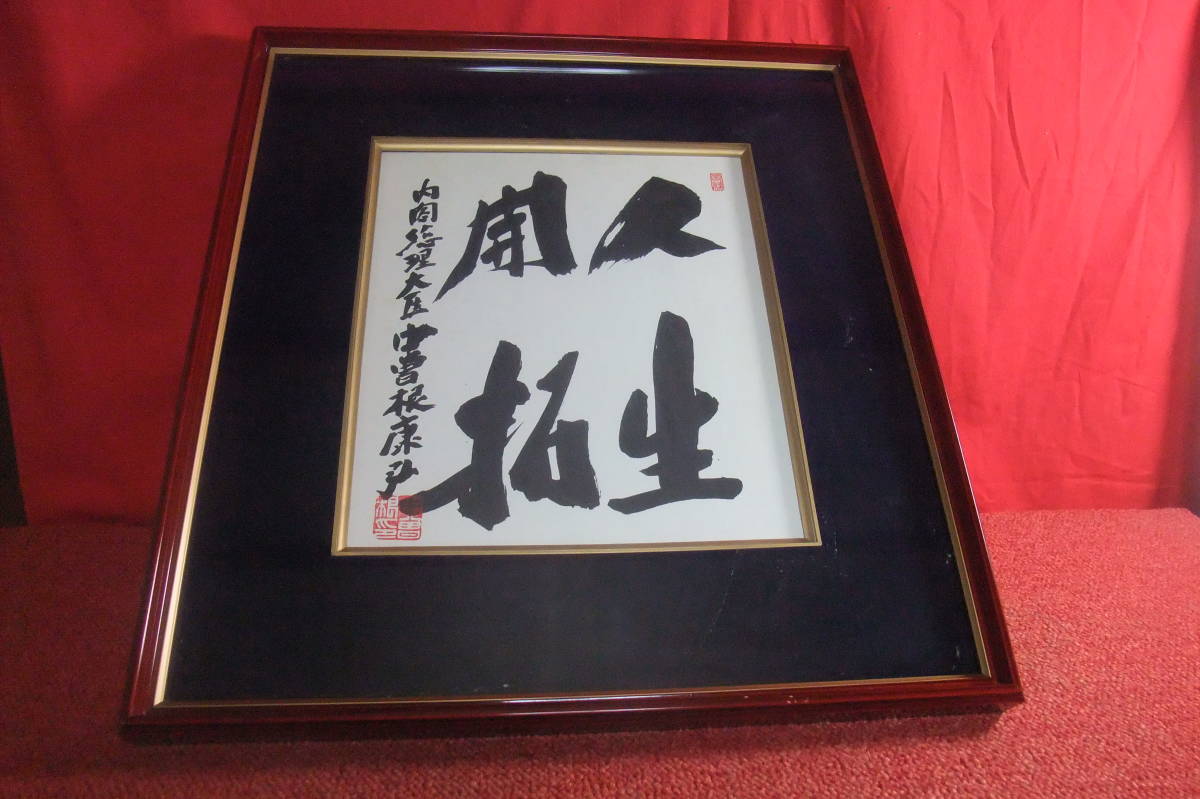 人生
開拓
内閣総理大臣中曽根康弘